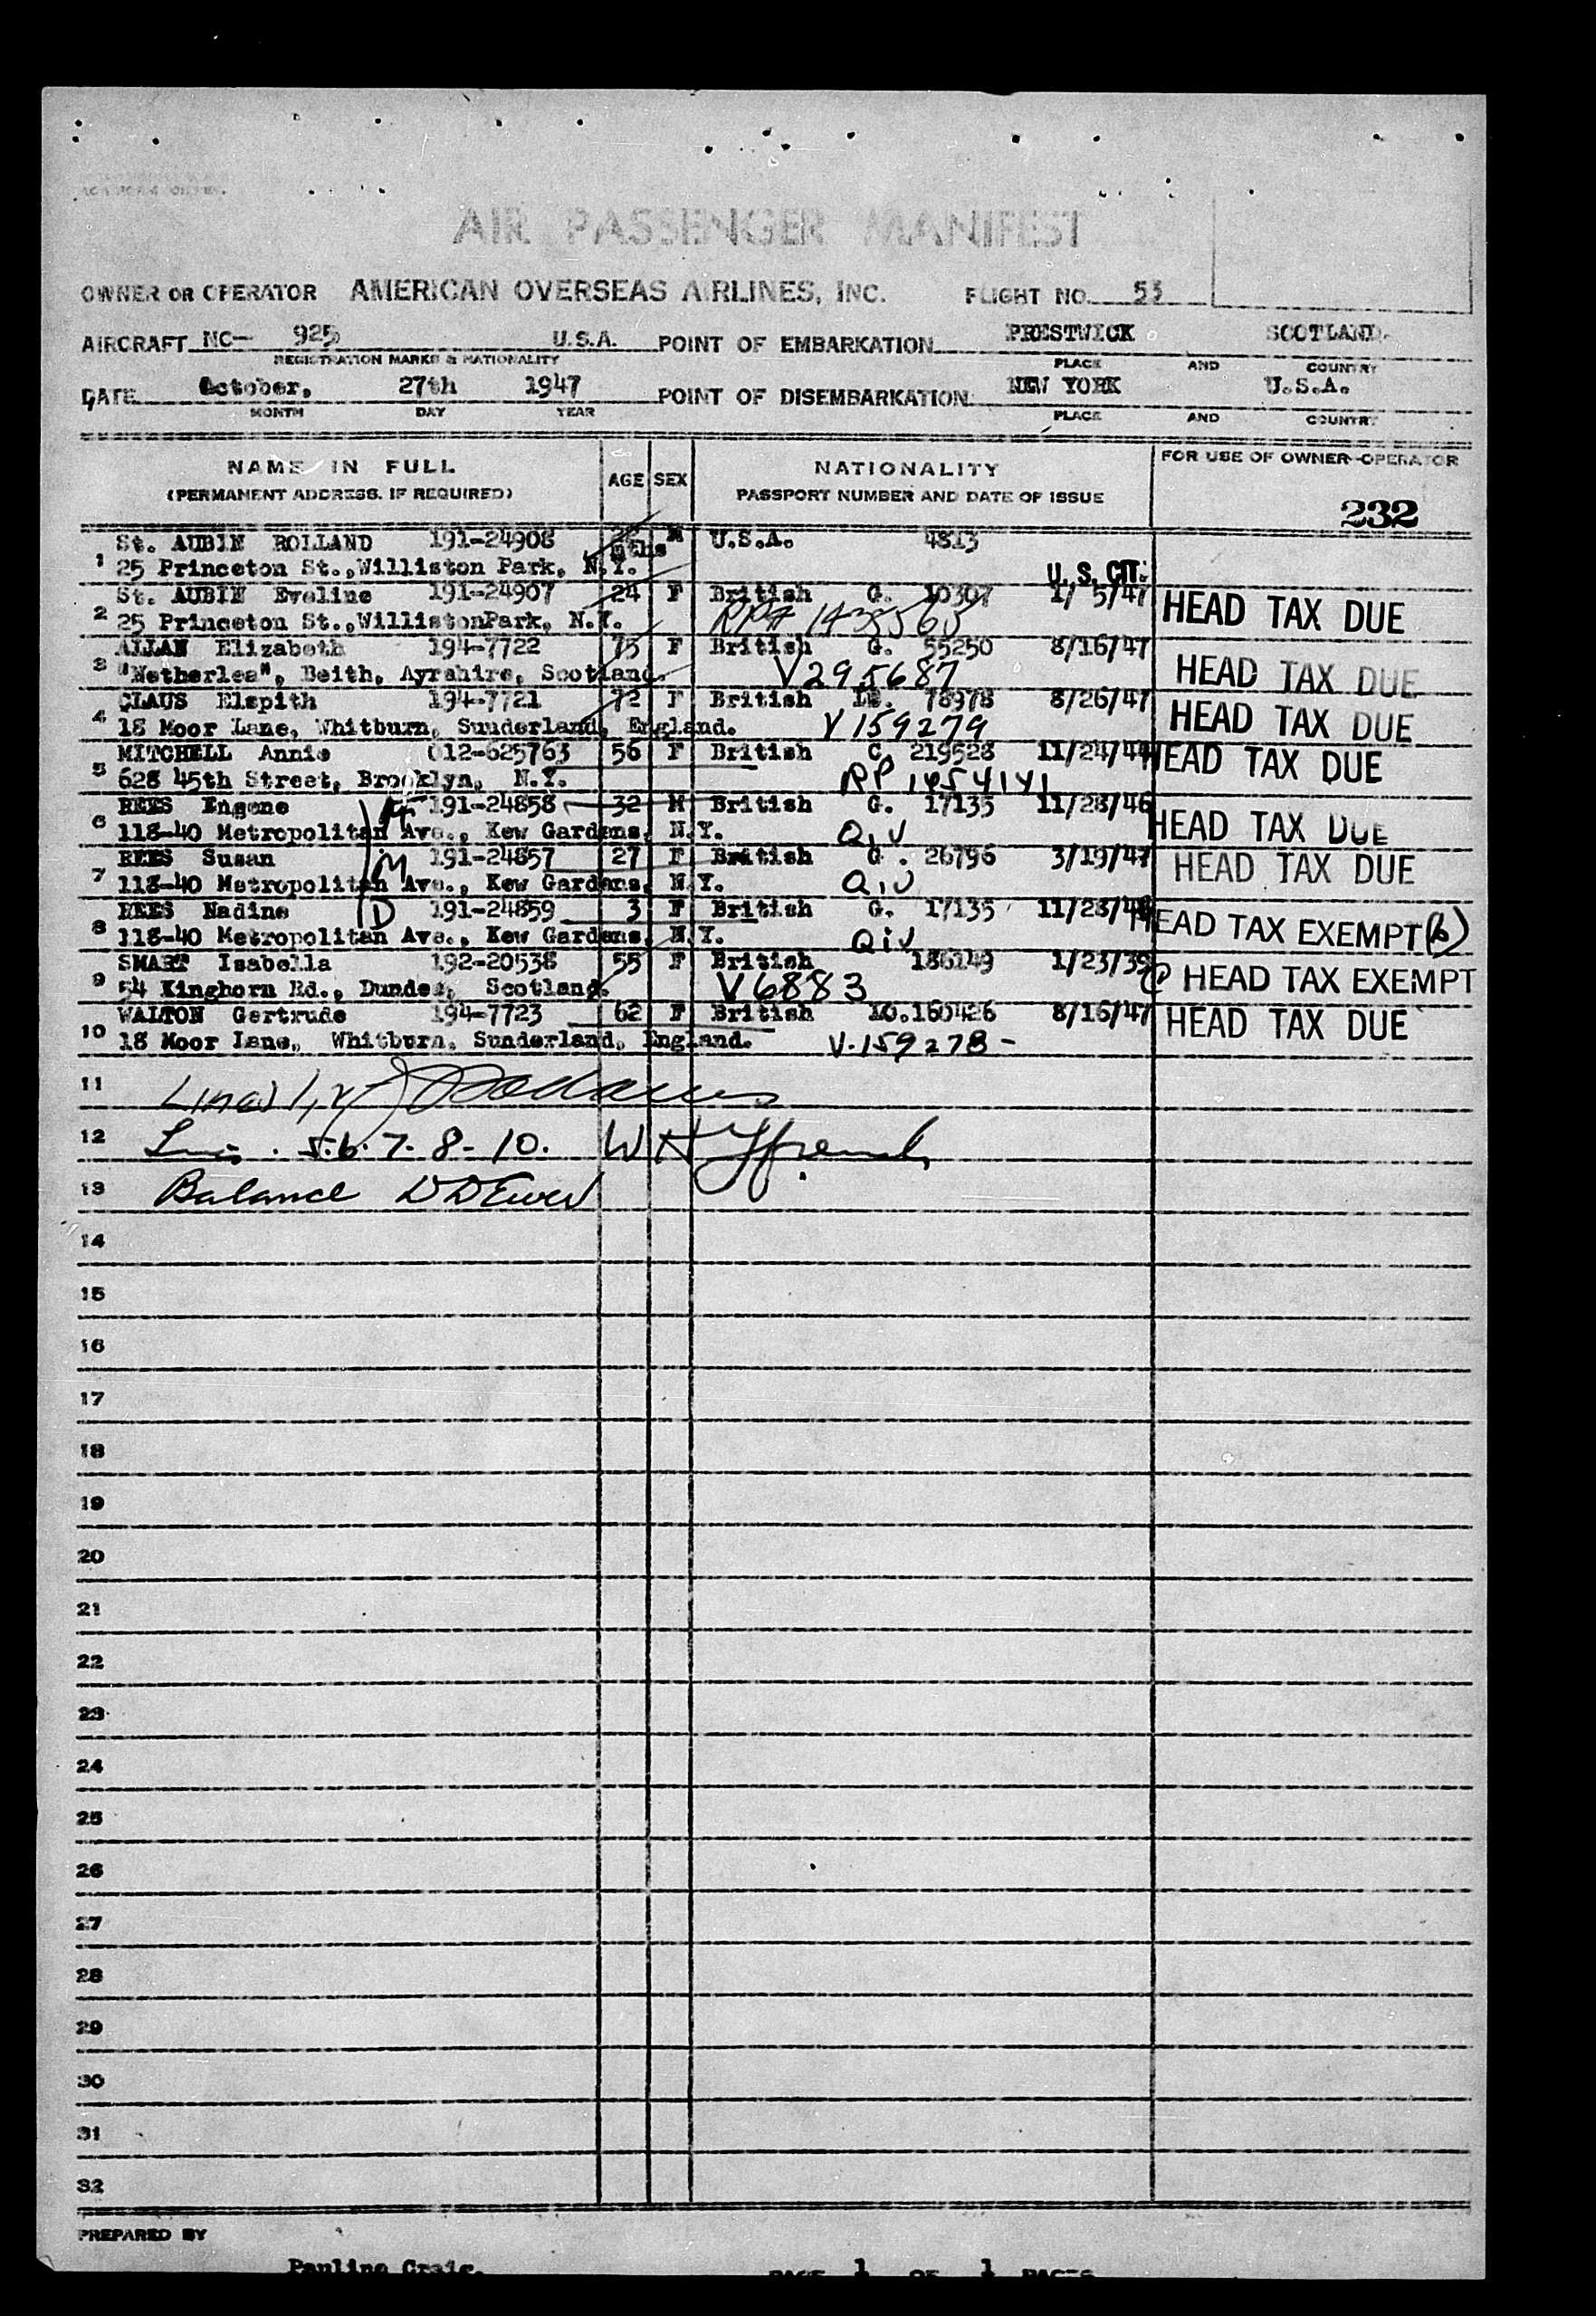 AIR PASSENGER MANIFEST
OWNER OR OPERATOR AMERICAN OVERSEAS AIRLINES, INC. FLIGHT NO. 53
AIRCRAFT NC— 925 U.S.A. POINT OF EMBARKATION PRESTWICK SCOTLAND.
REGISTRATION MARKS & NATIONALITY PLACE AND COUNTRY
DATE October, 27th 1947 POINT OF DISEMBARKATION NEW YORK U.S.A.
MONTH DAY YEAR PLACE AND COUNTRY
NAME IN FULL AGE SEX NATIONALITY FOR USE OF OWNER-OPERATOR
(PERMANENT ADDRESS, IF REQUIRED) PASSPORT NUMBER AND DATE OF ISSUE
232
St. AUBIN ROLLAND 191-24908 mths M U.S.A. 4813
1 25 Princeton St.,Williston Park, N.Y. U.S. CIT.
St. AUBIN Eveline 191-24907 24 F British G. 10307 1/ 5/47 HEAD TAX DUE
2 25 Princeton St.,WillistonPark, N.Y.
ALLAN Elizabeth 194-7722 75 F British G. 55250 8/16/47
3 "Netherlea", Beith, Ayrshire, Scotland. V295687 HEAD TAX DUE
CLAUS Elspith 194-7721 72 F British 78978 8/26/47
4 18 Moor Lane, Whitburn, Sunderland, England. V159279 HEAD TAX DUE
MITCHELL Annie 012-625763 56 F British C. 219528 11/24/44 HEAD TAX DUE
5 628 45th Street, Brooklyn, N.Y. RP 1454141
REES Eugene 191-24858 32 M British G. 17135 11/28/46
6 118-40 Metropolitan Ave., Kew Gardens, N.Y. QIV HEAD TAX DUE
REES Susan M 191-24857 27 F British G. 26796 3/19/47 HEAD TAX DUE
7 118-40 Metropolitan Ave., Kew Gardens, N.Y. QIV
REES Nadine D 191-24859 3 F British G. 17135 11/28/46 HEAD TAX EXEMPT (b)
8 118-40 Metropolitan Ave., Kew Gardens, N.Y. QIV
SMART Isabella 192-20538 55 F British 186149 1/23/39 HEAD TAX EXEMPT
9 54 Kinghorn Rd., Dundee, Scotland. V6883
WALTON Gertrude 194-7723 62 F British LO.160426 8/16/47 HEAD TAX DUE
10 18 Moor Lane, Whitburn, Sunderland, England. V.159278-
11 Lines 1, 2
12 5.6.7-8-10.
13 Balance
14
15
16
17
18
19
20
21
22
23
24
25
26
27
28
29
30
31
32
PREPARED BY
Pauline Craig. PAGE 1 OF 1 PAGES